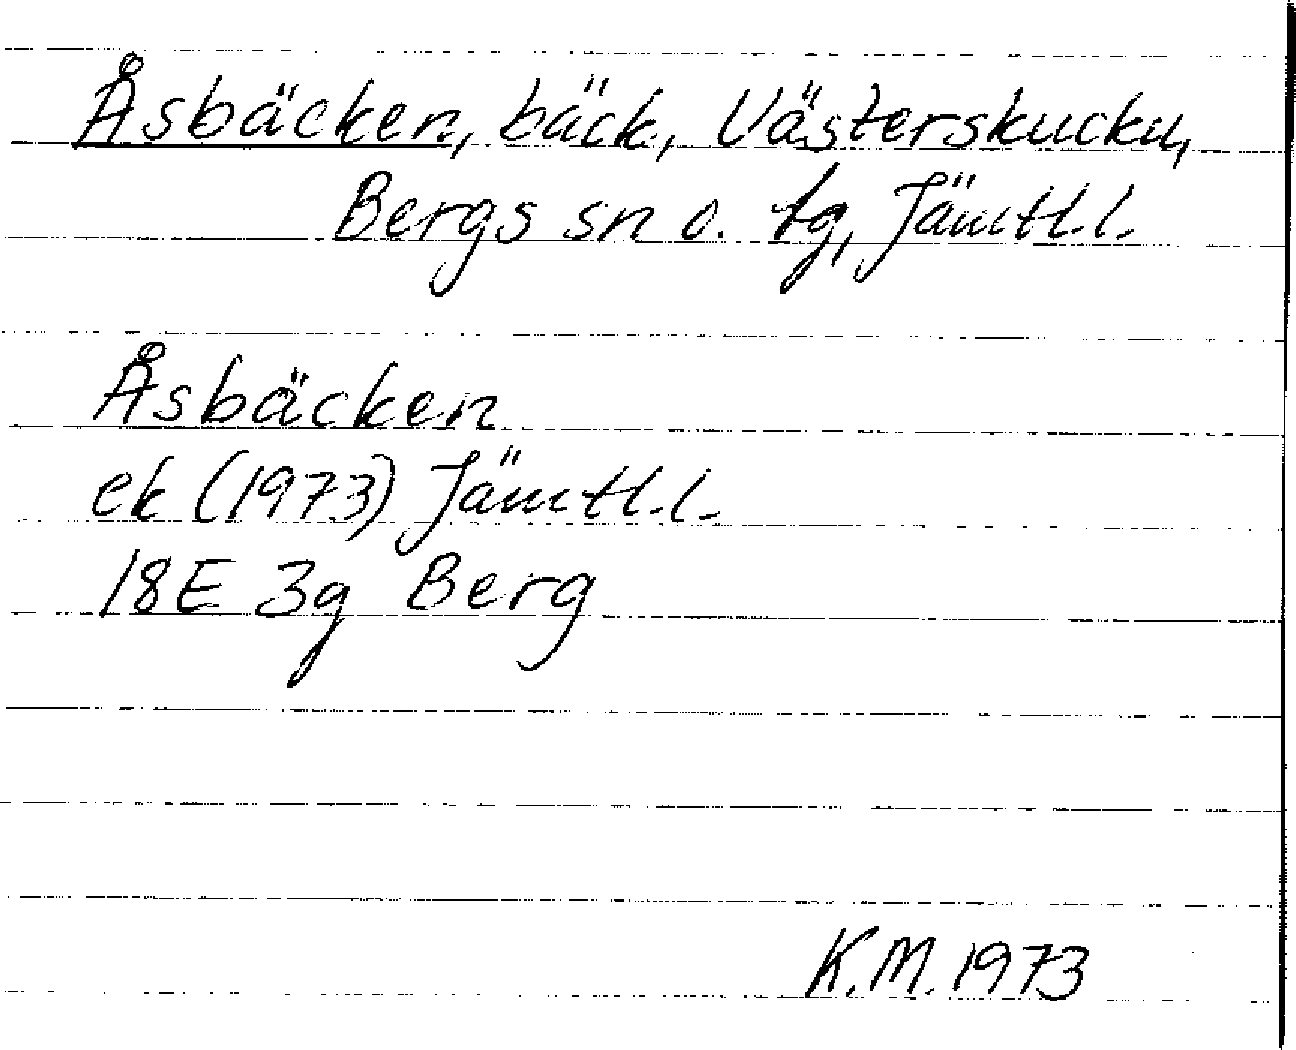 Åsbäcken, bäck, Västerskucku,
Bergs sn o. tg, Jämtl.l.
Åsbäcken
ek (1973) Jämtl.l.
18E 3g Berg
K.M. 1973